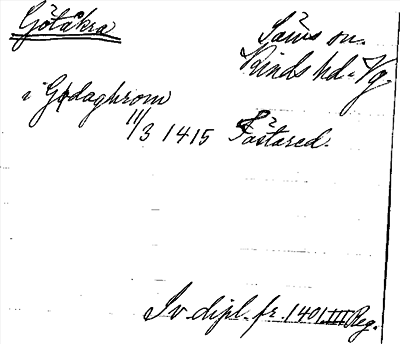 Götåkra
Säms sn.
Kinds hd. Vg
i Gødaghrom
11/3 1415 Fåstared.
Sv. dipl. fr. 1401 III Reg.